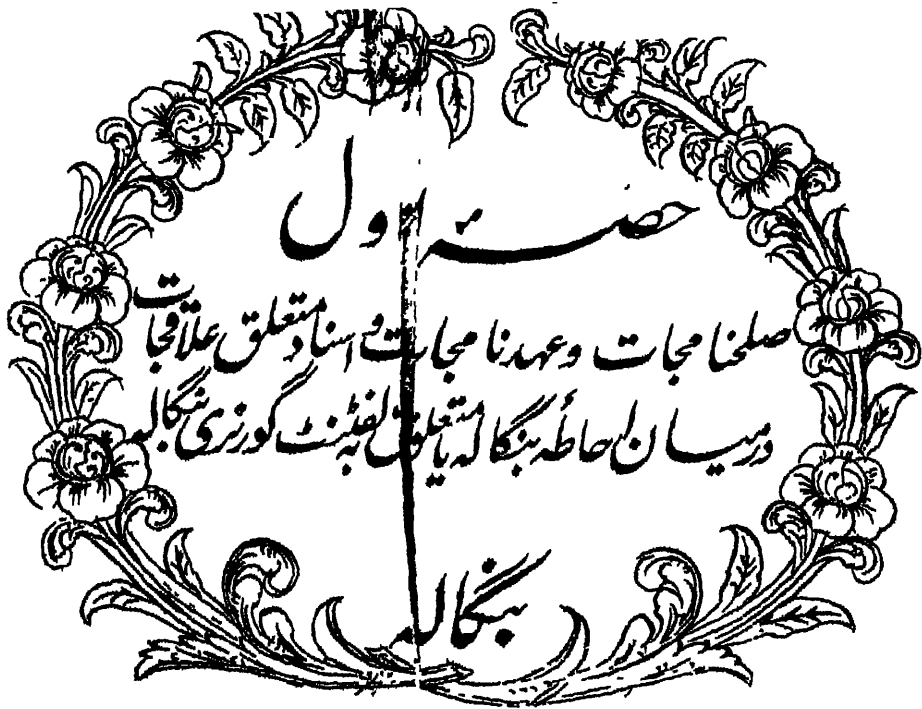 حصہٴ اول
صلحنامجات و عہدنامجات و اسناد متعلق علاقجات
درمیان احاطہٴ بنگالہ یا متعلق بہ لفٹننٹ گورنری بنگالہ
بنگالہ